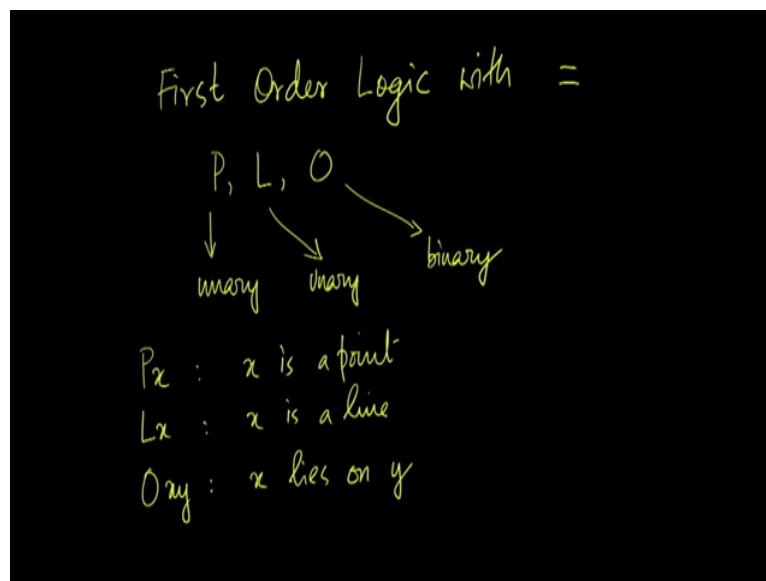 First Order Logic with =
P, L, O
unary unary binary
Px : x is a point
Lx : x is a line
Oxy : x lies on y